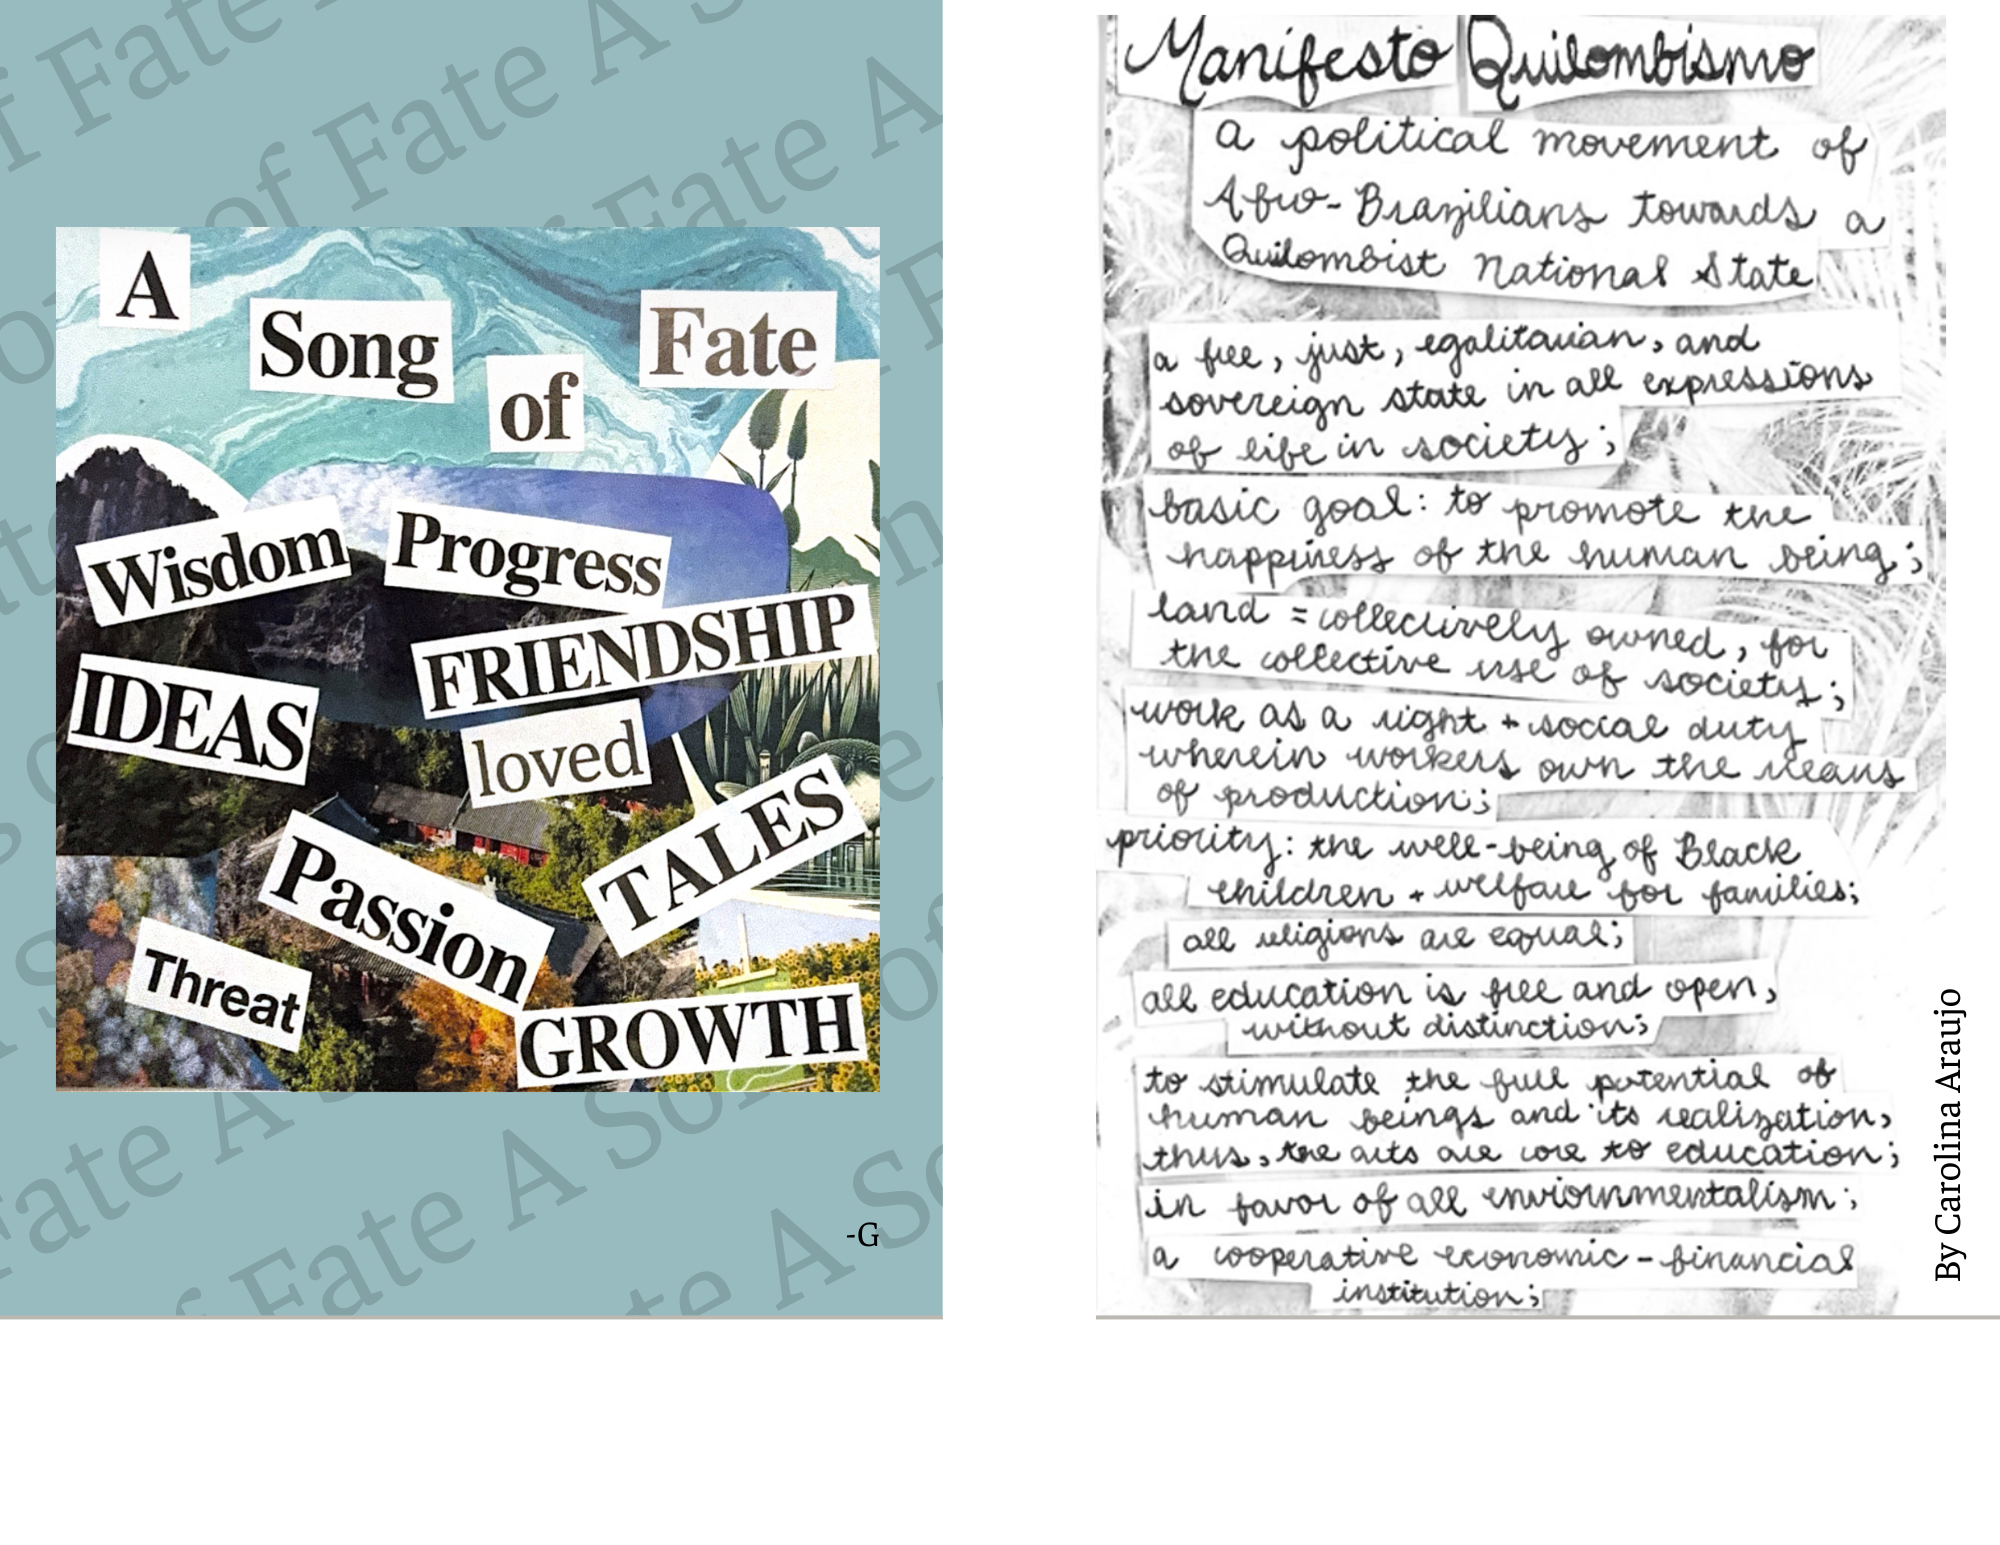 A
Song
of
Fate
Wisdom
Progress
FRIENDSHIP
IDEAS
loved
TALES
Passion
Threat
GROWTH
-G
Manifesto Quilombismo
a political movement of
Afro-Brazilians towards a
Quilombist National State
a free, just, egalitarian, and
sovereign state in all expressions
of life in society;
basic goal: to promote the
happiness of the human being;
land = collectively owned, for
the collective use of society;
work as a right + social duty
wherein workers own the means
of production;
priority: the well-being of Black
children + welfare for families;
all religions are equal;
all education is free and open,
without distinction;
to stimulate the full potential of
human beings and its realization,
thus, the arts are core to education;
in favor of all enviornmentalism;
a cooperative economic-financial
institution;
By Carolina Araujo